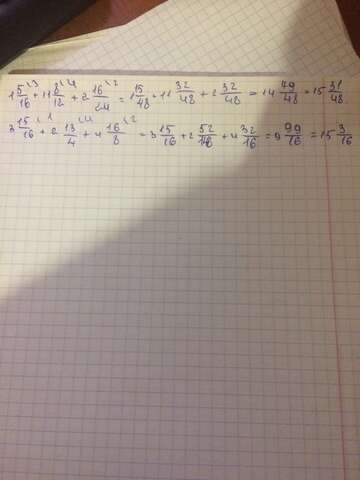 1 5/16 \3 + 11 8/12 \4 + 2 16/24 \2 = 1 15/48 + 11 32/48 + 2 32/48 = 14 79/48 = 15 31/48.
3 15/16 \1 + 2 13/4 \4 + 4 16/8 \2 = 3 15/16 + 2 52/16 + 4 32/16 = 9 99/16 = 15 3/16